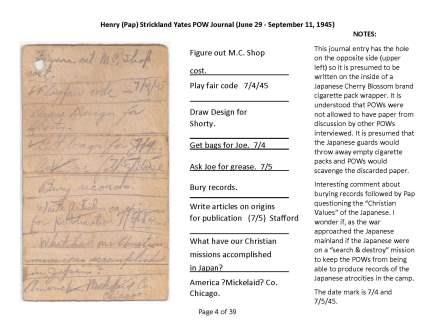 Henry (Pap) Strickland Yates POW Journal (June 29 - September 11, 1945)
Figure out M.C. Shop
cost.
Play fair code 7/4/45
Draw Design for
Shorty.
Get bags for Joe. 7/4
Ask Joe for grease. 7/5
Bury records.
Write articles on origins
for publication (7/5) Stafford
What have our Christian
missions accomplished
in Japan?
America ?Mickelaid? Co.
Chicago.
NOTES:
This journal entry has the hole
on the opposite side (upper
left) so it is presumed to be
written on the inside of a
Japanese Cherry Blossom brand
cigarette pack wrapper. It is
understood that POWs were
not allowed to have paper from
discussion by other POWs
interviewed. It is presumed that
the Japanese guards would
throw away empty cigarette
packs and POWs would
scavenge the discarded paper.
Interesting comment about
burying records followed by Pap
questioning the "Christian
Values" of the Japanese. I
wonder if, as the war
approached the Japanese
mainland if the Japanese were
on a "search & destroy" mission
to keep the POWs from being
able to produce records of the
Japanese atrocities in the camp.
The date mark is 7/4 and
7/5/45.
Page 4 of 39
Figure out M.C. Shop
cost.
Play fair code 7/4/45
Draw Design for
Bury records.
What have our Christian
missions accomplished
in Japan?